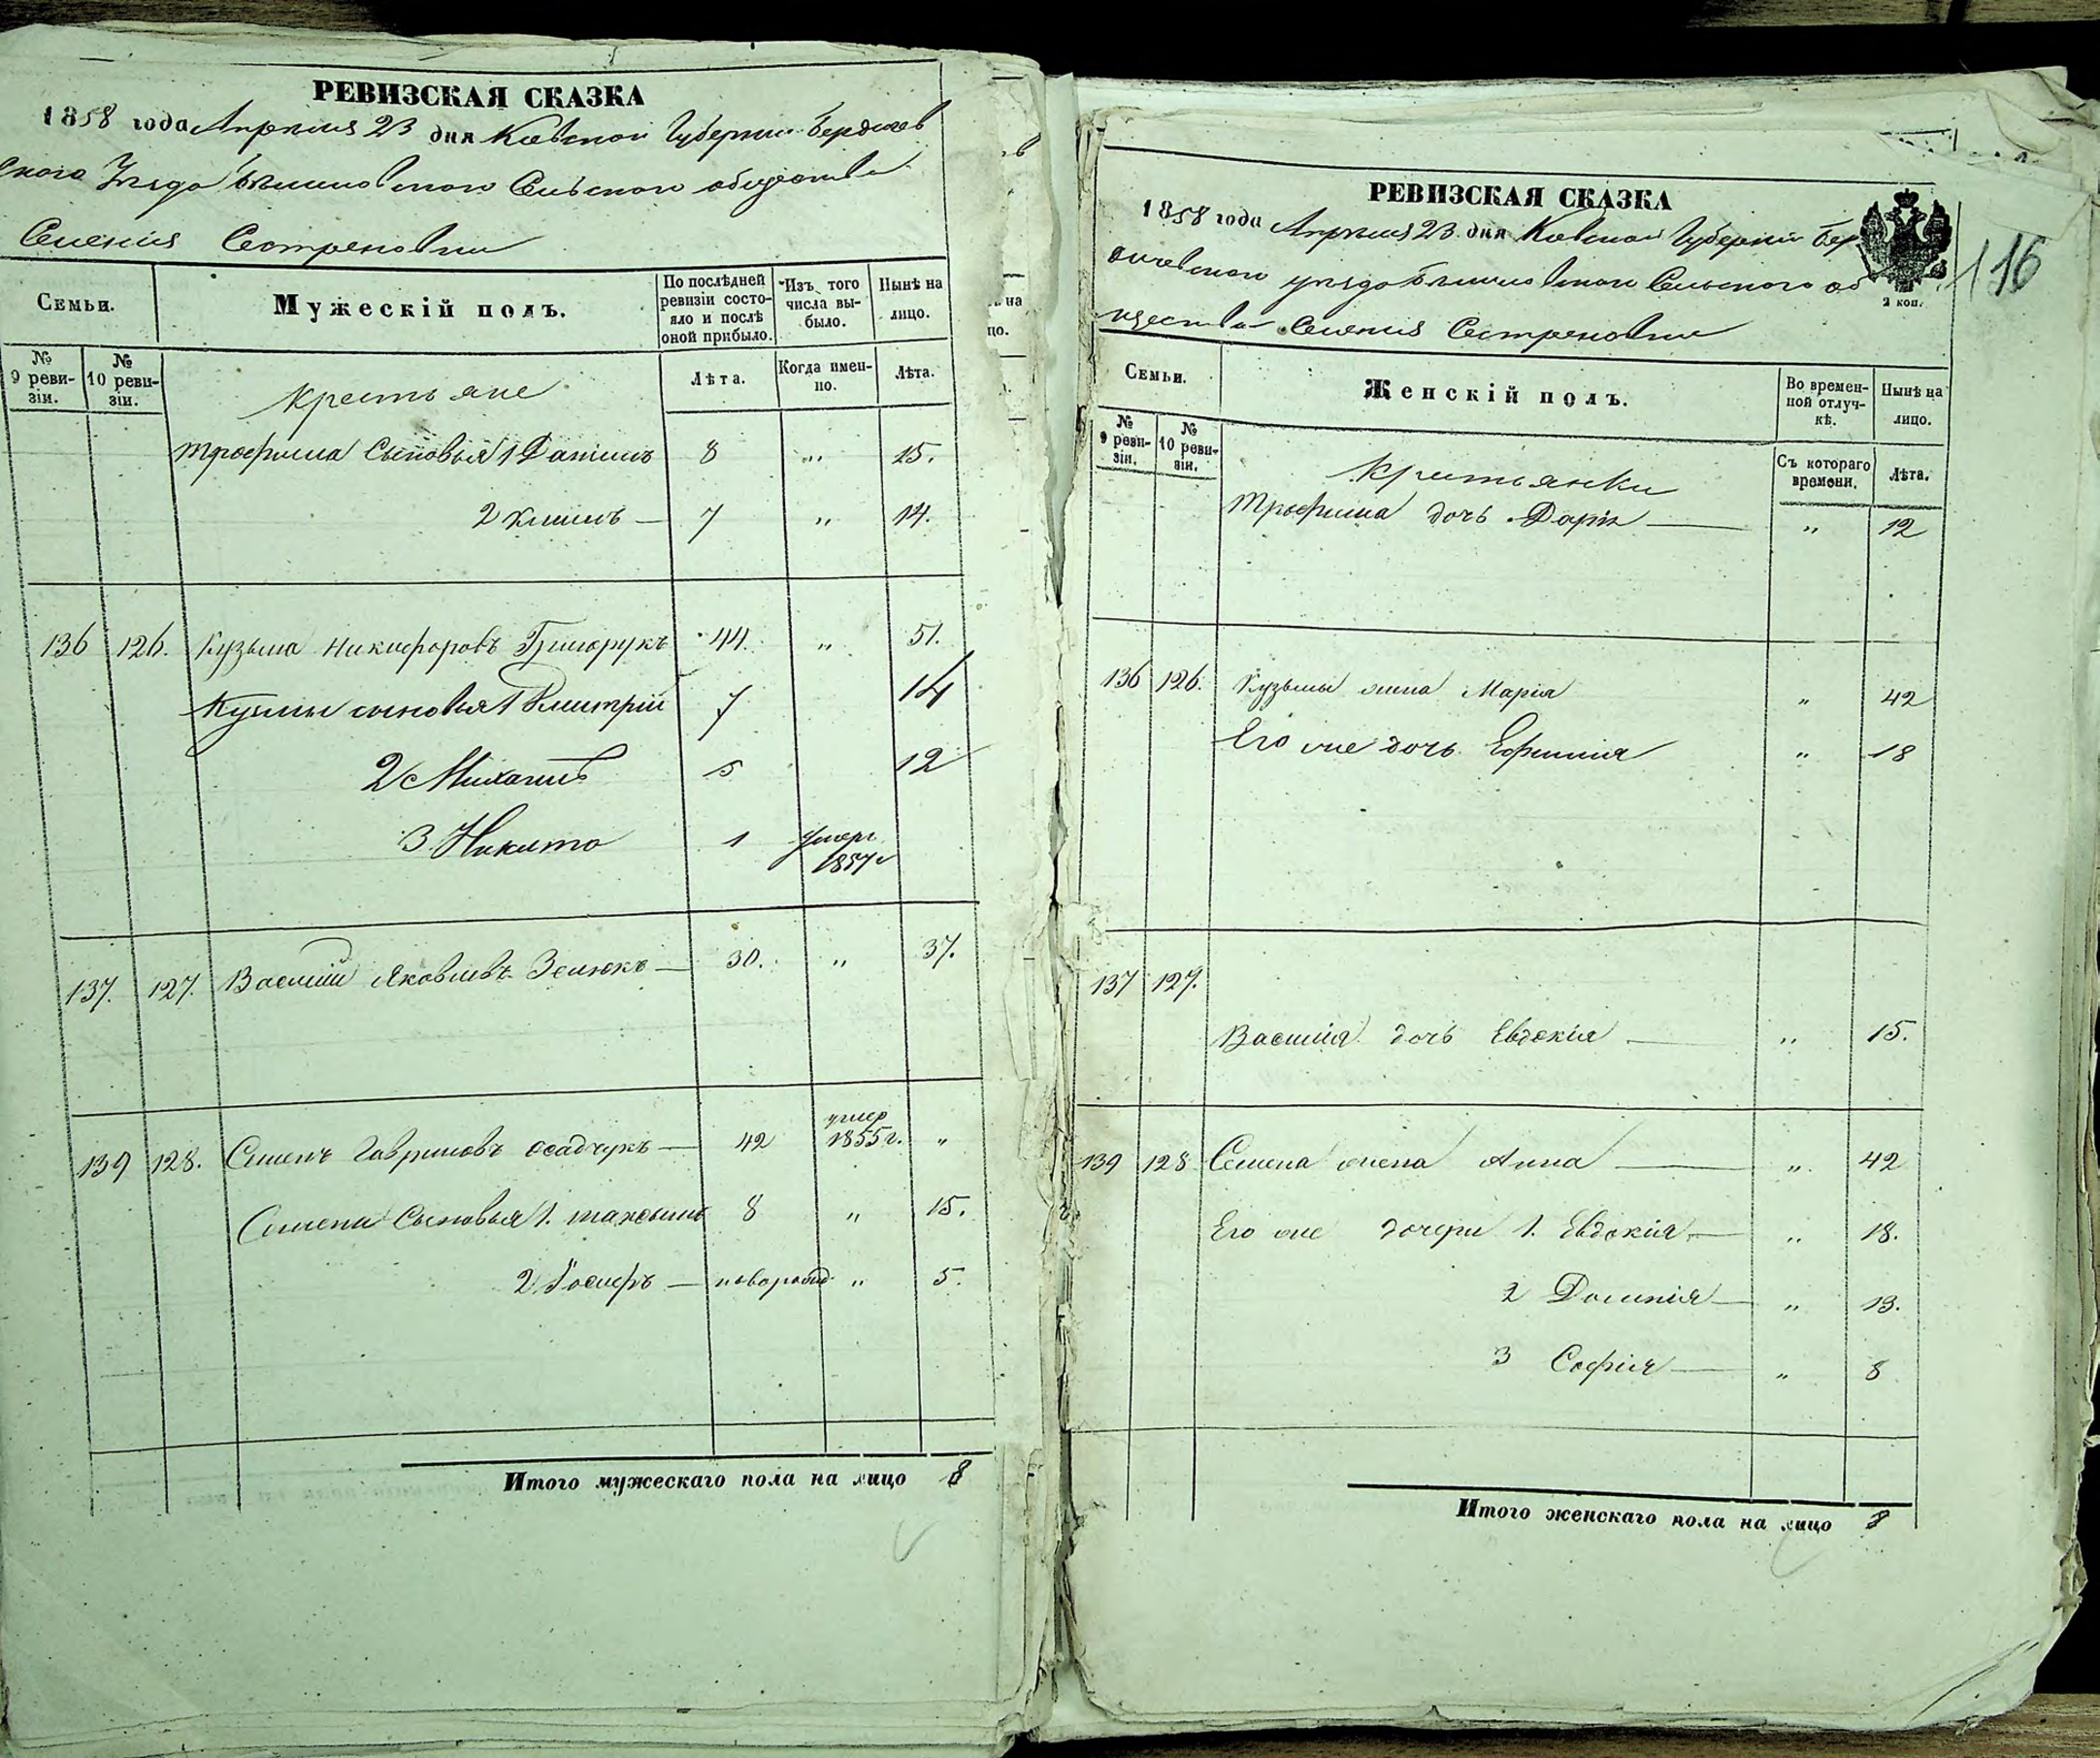 РЕВИЗСКАЯ СКАЗКА
1858 года Апрѣля 23 дня Кіевской Губерніи Бердичев
скаго Уѣзда Сельскаго общества
Селенія Сестреновки
Семьи.
Мужескій полъ.
По послѣдней ревизіи состояло и послѣ оной прибыло.
Изъ того числа выбыло.
Нынѣ на лицо.
№ 9 ревизіи.
№ 10 ревизіи.
Крестьяне
Лѣта.
Когда именно.
Лѣта.
Трофима Сыновья 1 Данилъ 8 „ 15.
2 Климъ — 7 „ 14.
136 126. Кузьма Никифоровъ 44. „ 51.
Кузьмы сыновья 1 Дмитрій 7 14
2 Михаилъ 5 12
3 Никита 1 умеръ 1857 г
137. 127. Василій Яковлевъ Зелюкъ — 30. „ 37.
139 128. Семенъ Гавриловъ Осадчукъ — 42 умер 1855 г. „
Семена Сыновья 1. Максимъ 8 „ 15.
2 Іосифъ — новорожд „ 5.
Итого мужескаго пола на лицо 8
РЕВИЗСКАЯ СКАЗКА
116
1858 года Апрѣля 23 дня Кіевской Губерніи Бер
дичевскаго уѣзда Сельскаго об
щества Селенія Сестреновки
2 коп.
Семьи.
Женскій полъ.
Во временной отлучкѣ.
Нынѣ на лицо.
№ 9 ревизіи.
№ 10 ревизіи.
Крестьянки
Съ котораго времени.
Лѣта.
Трофима дочь Дарія — „ 12
136 126. Кузьмы жена Марія „ 42
Его же дочь Ефимія „ 18
137 127.
Василія дочь Евдокія — „ 15.
139 128 Семена жена Анна — „ 42
Его же дочери 1. Евдокія — „ 18.
2 Домнія — „ 13.
3 Софія — „ 8
Итого женскаго пола на лицо 8